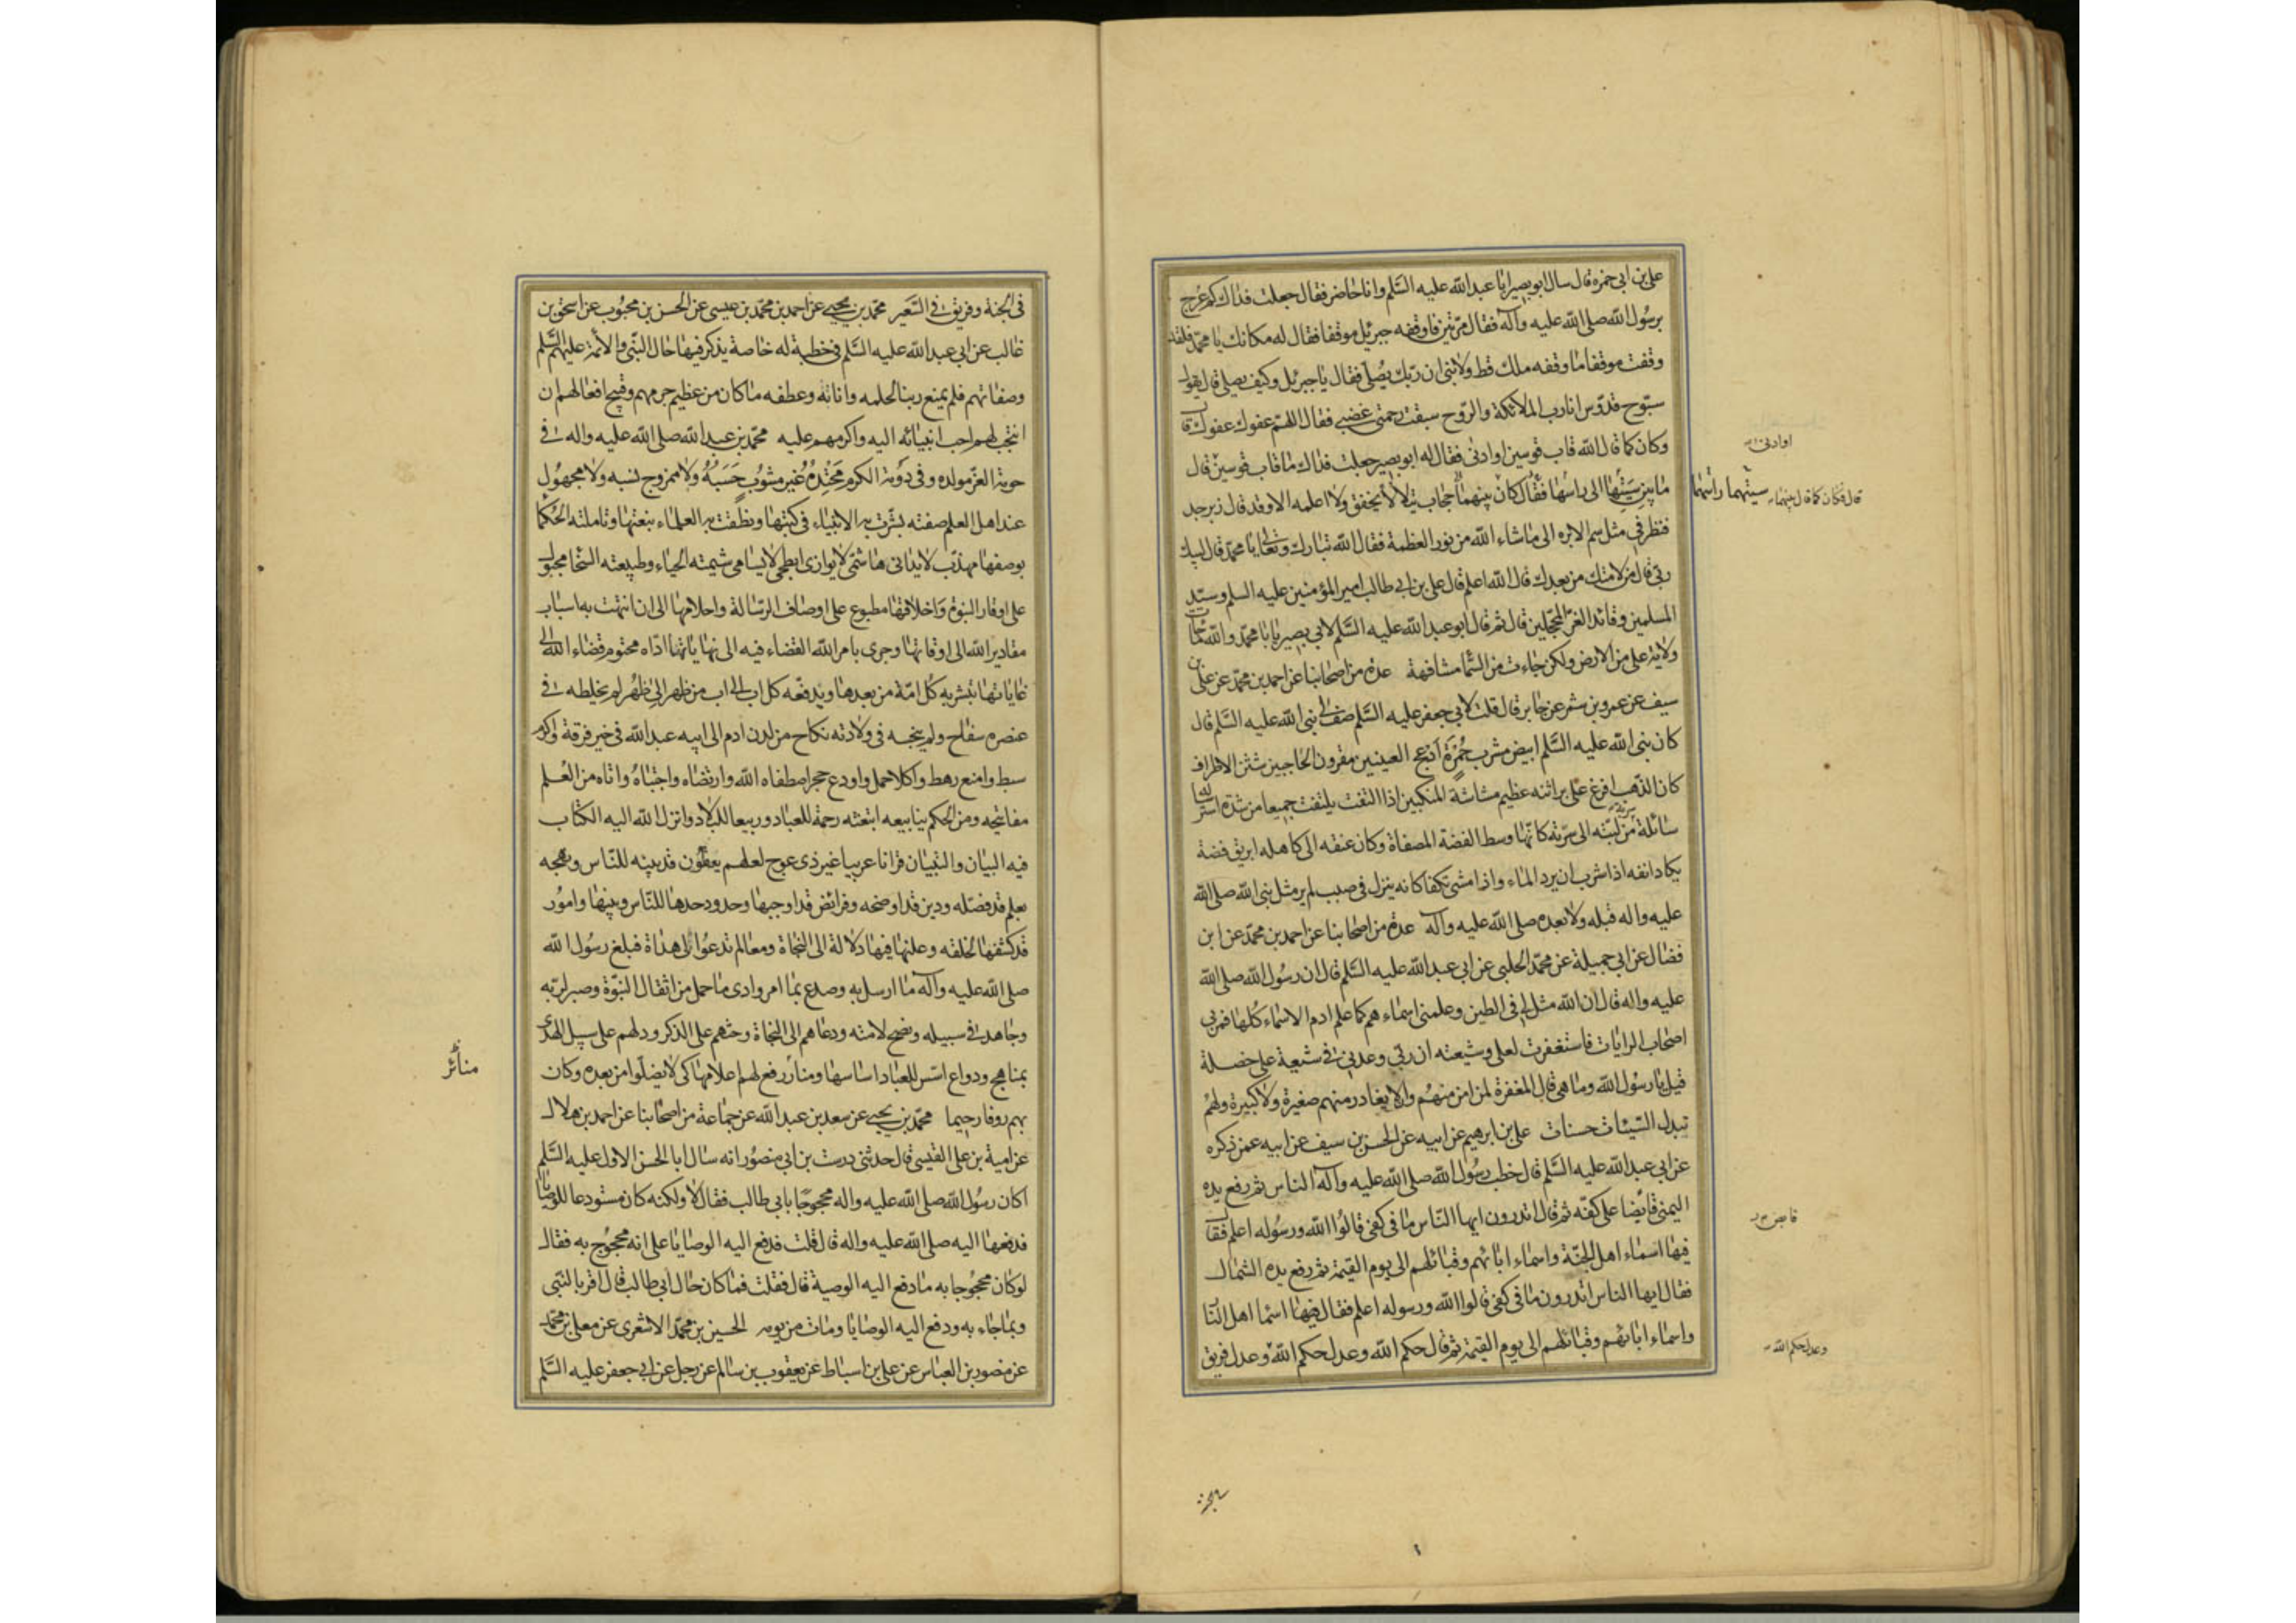 علي بن ابي حمزة قال سال ابو بصير ابا عبد الله عليه السّلم وانا حاضر فقال جعلت فداك كم عرج
برسُول الله صلى الله عليه وآله فقال مرّتين فاوقفه جبرئيل موقفا فقال له مكانك يا محمّد فلقد
وقفت موقفا ما وقفه ملك قط ولا نبى ان ربّك يُصلّى فقال يا جبرئيل وكيف يصلى قال يقول
سبّوح قدّوس انا رب الملائكة والرّوح سبقت رحمتى غضبى فقال اللهمّ عفوك عفوك قال
وكان كما قال الله قاب قوسين او ادنى فقال له ابو بصير جعلت فداك ما قاب قوسين قال
ما بين سيتها الى راسها فقال كان بينهما حجاب يتلالأ يخفق ولا اعلمه الا وقد قال زبرجد
فنظر فى مثل سم الابره الى ما شاء الله من نور العظمة فقال الله تبارك وتعالى يا محمّد قال لبيك
ربّى قال من لامتك من بعدك قال الله اعلم قال على بن ابى طالب امير المؤمنين عليه السلم وسيّد
المسلمين وقائد الغرّ المحجّلين قال ثم قال ابو عبد الله عليه السّلم لابى بصير يا با محمّد والله ما جات
ولاية على من الارض ولكن جاءت من السّما مشافهة عدة من اصحابنا عن احمد بن محمّد عن على بن
سيف عن عمرو بن شمر عن جابر قال قلت لابى جعفر عليه السّلم صف لى نبى الله عليه السّلم قال
كان نبى الله عليه السّلم ابيض مشرب حُمْرَة ادعج العينين مقرون الحاجبين شثن الاطراف
كان الذّهب افرغ على براثنه عظيم مشاشة المنكبين اذا التفت يلتفت جميعا من شدة استرساله
سائلة من لبّته الى سرّته كانّها وسط الفضة المصفاة وكان عنقه الى كاهله ابريق فضة
يكاد انفه اذا شرب ان يرد الماء واذا مشى تكفا كانه ينزل فى صبب لم ير مثل نبى الله صلى الله
عليه واله قبله ولا بعده صلى الله عليه وآله عدة من اصحابنا عن احمد بن محمّد عن ابن
فضال عن ابى جميلة عن محمّد الحلبى عن ابى عبد الله عليه السّلم قال ان رسُول الله صلى الله
عليه واله قال ان الله مثل لى امتى فى الطين وعلمنى اسماءهم كما علم ادم الاسماء كُلها فمر بى
اصحاب الرايات فاستغفرت لعلى وشيعته ان ربّى وعدنى فى شيعة على خصلة
قيل يا رسُول الله وما هى قال المغفرة لمن امن منهُم والا يغادر منهم صغيرة ولا كبيرة ولهُم
تبدل السّيئات حسنات على بن ابرهيم عن ابيه عن الحسن بن سيف عن ابيه عمن ذكره
عن ابى عبد الله عليه السّلم قال خطب رسُول الله صلى الله عليه وآله الناس ثم رفع يده
اليمنى قابضا على كفّه ثم قال اتدرون ايها النّاس ما فى كفى قالوُا الله ورسُوله اعلم فقال
فيها اسماء اهل الجنّة واسماء ابائهم وقبائلهم الى يوم القيمة ثم رفع يده الشمال
فقال ايها الناس اتدرون ما فى كفى قالوا الله ورسوله اعلم فقال فيها اسما اهل النّار
واسماء ابائهم وقبائلهم الى يوم القيمة ثم قال حكم الله وعدل حكم الله وعدل فريق
او ادنى
قال فكان كما قال بينهما سيتهما راسهما
قابض
وعدل حكم الله
فى الجنة وفريق فى السّعير محمّد بن يحيى عن احمد بن محمّد بن عيسى عن الحسن بن محبُوب عن اسحق بن
غالب عن ابى عبد الله عليه السّلم فى خطبة له خاصة يذكر فيها حال النبّى والأئمة عليهم السّلم
وصفاتهم فلم يمنع ربنا لحلمه واناته وعطفه ما كان من عظيم جرمهم وقبيح افعالهم ان
انتجب لهم احب انبيائه اليه واكرمهم عليه محمّد بن عبد الله صلى الله عليه واله فى
حومة العزّ مولده وفى دَومة الكرم مَحْتِدُهُ غير مشوُب حَسَبُهُ ولا ممزوج نسبه ولا مجهوُل
عند اهل العلم صفته بشّرت به الانبياء فى كتبها ونطقت به العلماء بنعتها وتاملته الحُكما
بوصفها مهذّب لا يدانى هاشمّى لا يوازى ابطحى لا يسامى شيمته الحياء وطبيعته السّخا مجبُول
على اوقار النبوة واخلاقها مطبوع على اوصاف الرّسالة واحلامها الى ان انتهت به اسباب
مقادير الله الى اوقاتها وجرى بامر الله القضاء فيه الى نهاياتها ادّاه محتوم قضاء الله الى
غاياتها تبشر به كل امّة من بعدها ويدفعه كل اب الى اب من ظهر الى ظهر لم يخلطه فى
عنصره سفاح ولم ينجسه فى ولادته نكاح من لدن ادم الى ابيه عبد الله فى خير فرقة واكرم
سبط وامنع رهط واكلا حمل واودع حجر اصطفاه الله وارتضاه واجتباهُ واتاه من العُلم
مفاتيحه ومن الحُكم ينابيعه ابتعثه رحمة للعباد وربيعا للبلاد وانزل الله اليه الكتاب
فيه البيان والتبيان قرانا عربيا غير ذى عوج لعلهم يعقلون قد بينه للنّاس ونهجه
بعلم قد فصّله ودين قد اوضحه وفرائض قد اوجبها وحدود حدها للنّاس وبينها وامُور
قد كشفها لخلقه وعلنها فيها دلالة الى النّجاة ومعالم تدعُوا الى هداة فبلغ رسُول الله
صلى الله عليه وآله ما ارسل به وصدع بما امر وادى ما حمل من اثقال النبّوة وصبر لربّه
وجاهد فى سبيله ونصح لامته ودعاهم الى النجاة وحثهم على الذكر ودلهم على سبيل الهدى
بمناهج ودواع اسّس للعباد اساسها ومنائر رفع لهم اعلامها كى لا يضلّوا من بعده وكان
بهم روفا رحيما محمّد بن يحيى عن سعد بن عبد الله عن جماعة من اصحابنا عن احمد بن هلال
عن امية بن على القيسى قال حدثنى درست بن ابى منصُور انه سال ابا الحسن الاول عليه السّلم
اكان رسُول الله صلى الله عليه واله محجوجًا بابى طالب فقال لا ولكنه كان مستودعا للوصايا
فدفعها اليه صلى الله عليه واله قال قلت فدفع اليه الوصايا على انه محجُوج به فقال
لو كان محجُوجا به ما دفع اليه الوصية قال فقلت فما كان حال ابى طالب قال اقر بالنّبى
وبما جاء به ودفع اليه الوصايا ومات من يومه الحسين بن محمّد الاشعرى عن معلى بن محمّد
عن منصور بن العباس عن على بن اسباط عن يعقوب بن سالم عن رجل عن ابى جعفر عليه السّلم
منائر